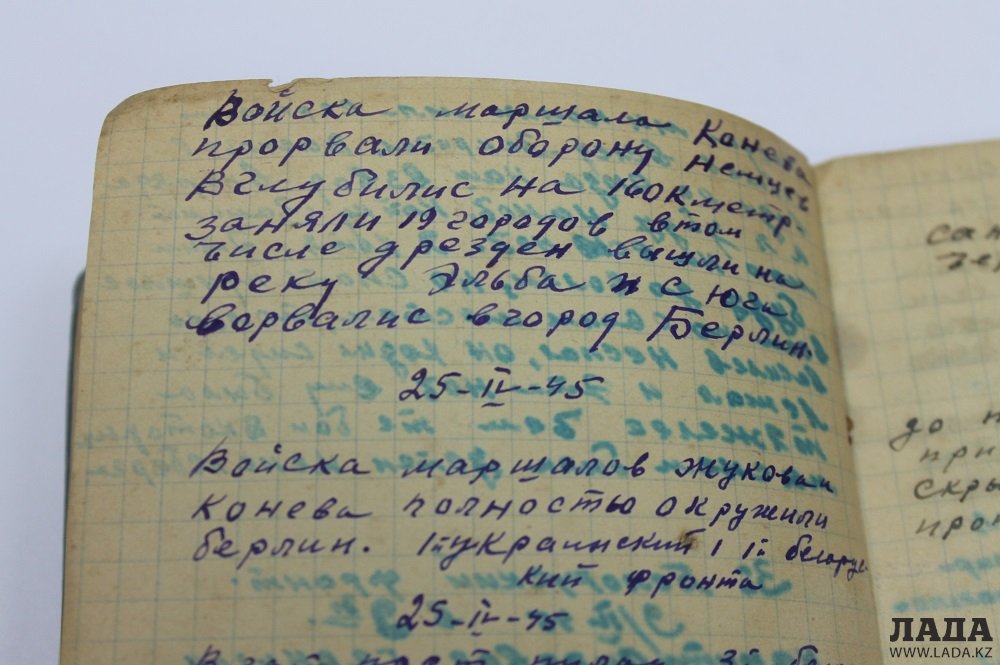 Войска маршала Конева
прорвали оборону немцев
Вглубилис на 160 кметр.
заняли 19 городов втом
числе дрезден вышли на
реку Эльба и с Юга
ворвалис вгород Берлин.
25-IV-45
Войска маршалов Жукова и
Конева полностью окружили
берлин. 1й украинский 1 1й белорус
кий фронта
25-IV-45
сан
до н
при
скры
про
ЛАДА
WWW.LADA.KZ